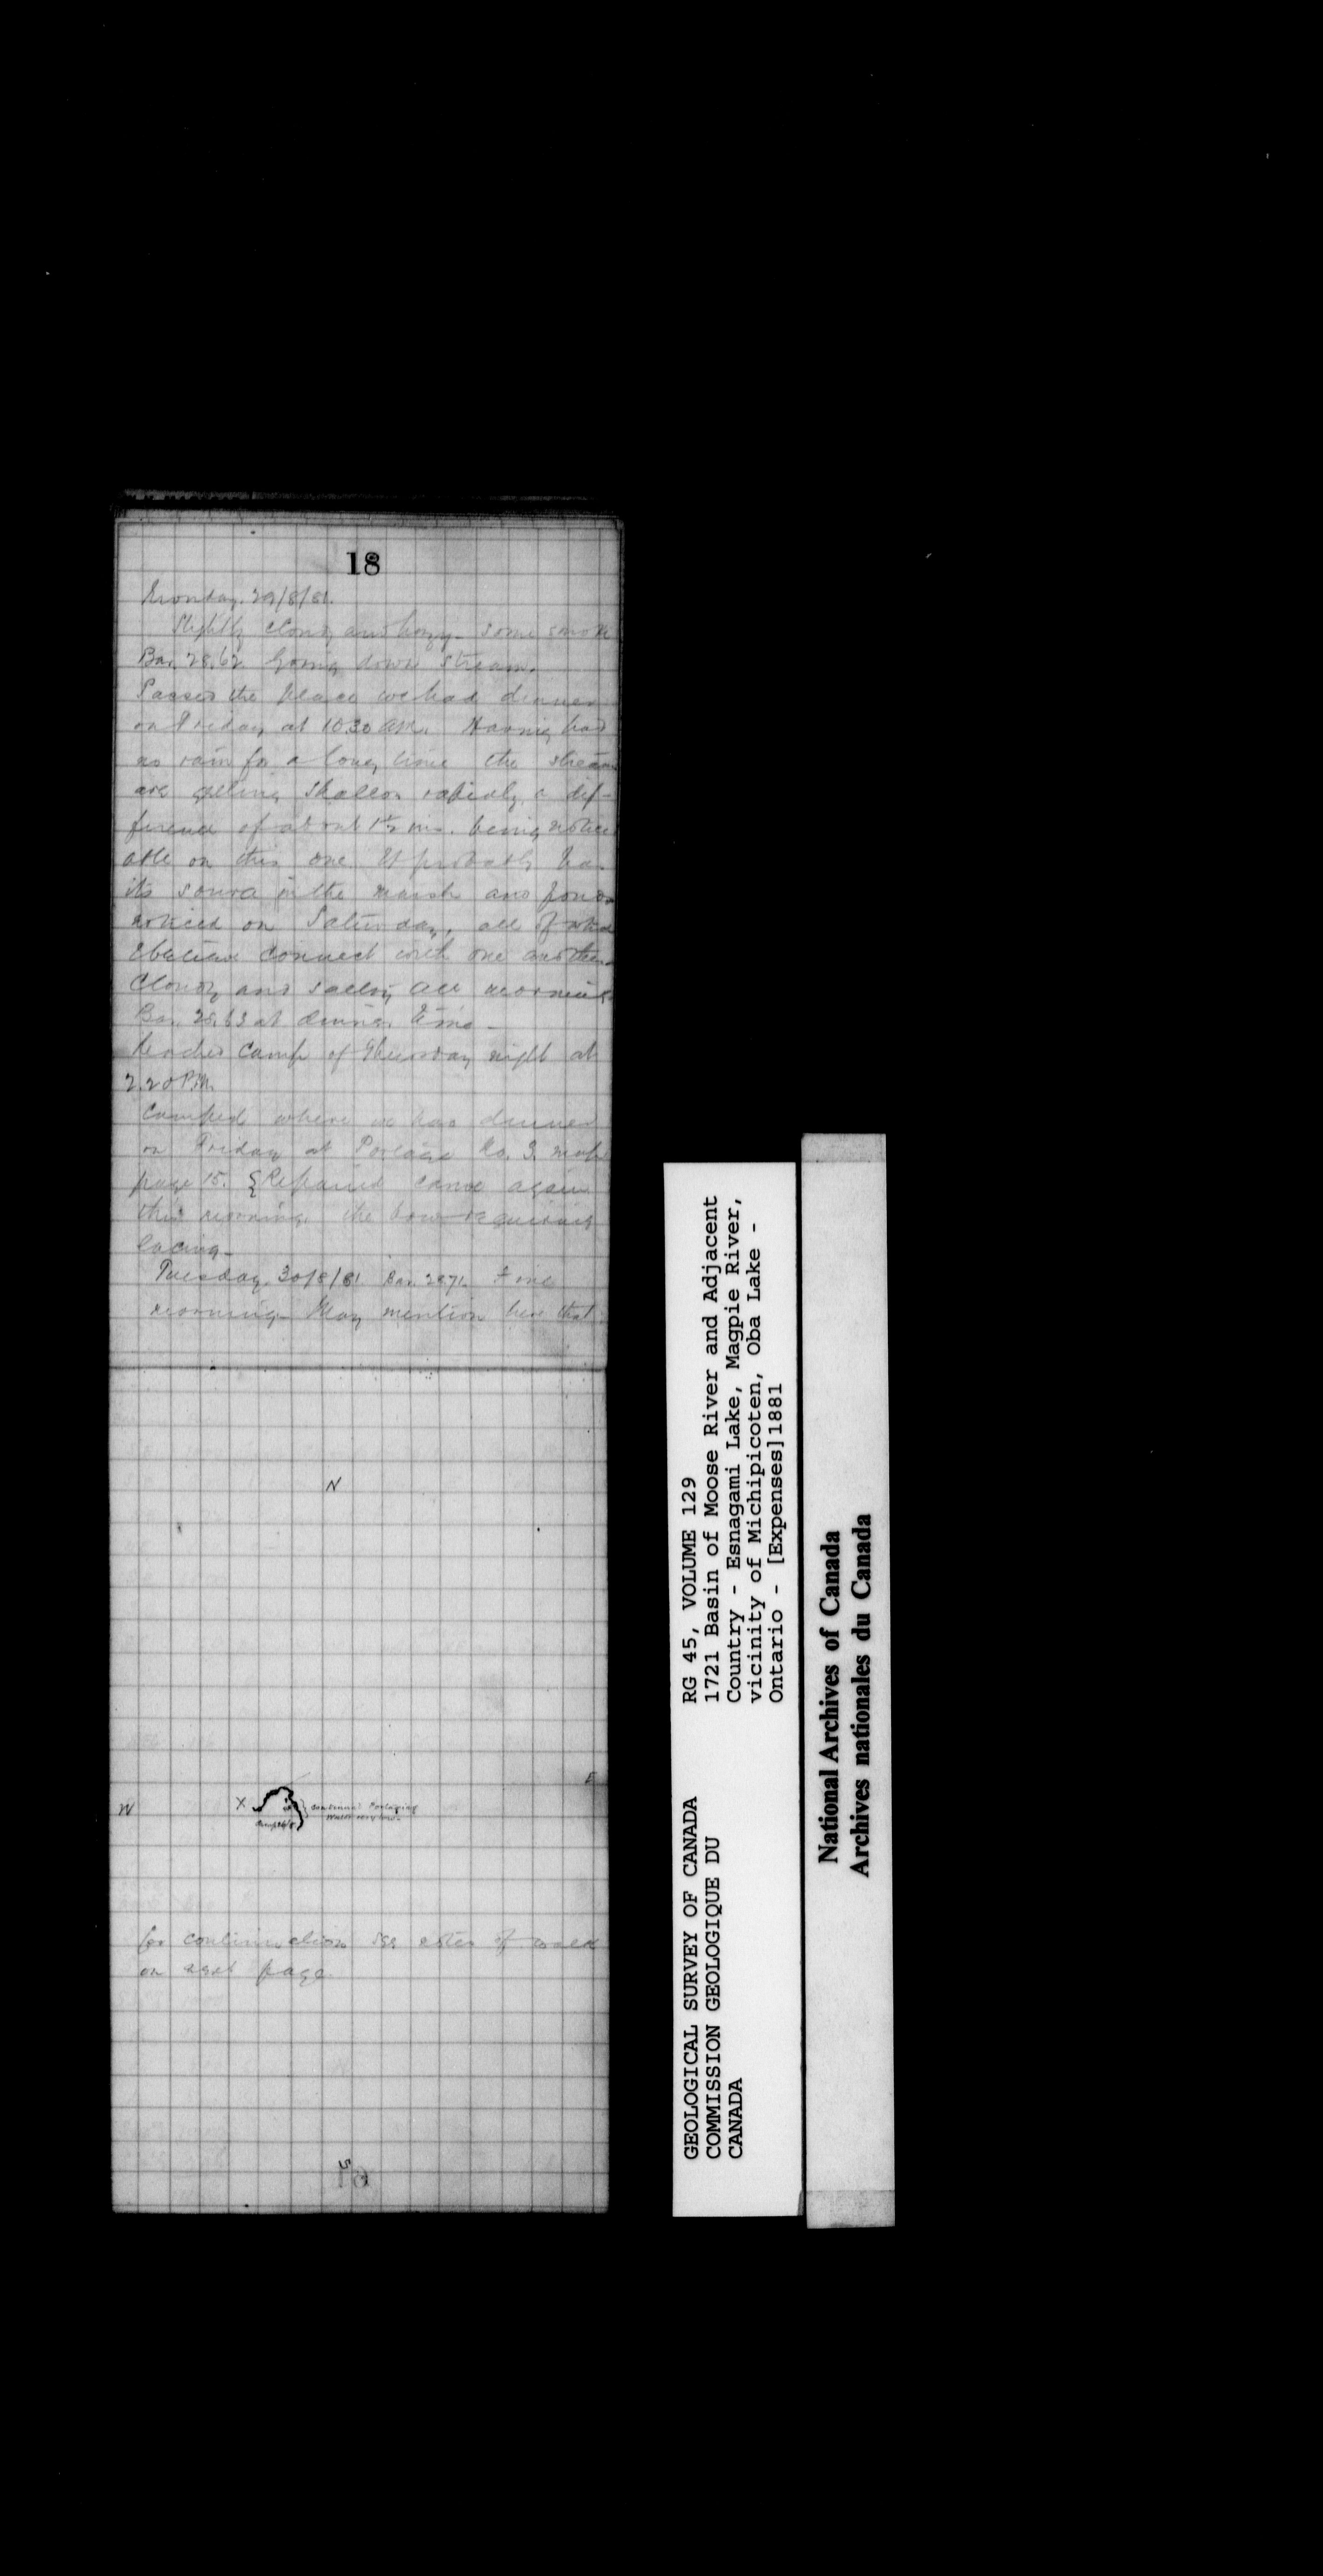 18
Monday. 29/8/81.
Slightly cloudy and hazy - some smoke
Bar. 28.62 Going down stream.
Passed the place we had dinner
on Friday at 10.30 AM. Having had
no rain for a long time the streams
are getting shallow rapidly, a dif-
ference of about 1½ ins. being notice
able on this one. It probably has
its source in the marsh and ponds
noticed on Saturday, all of which
I believe connect with one another.
Cloudy and all morning.
Bar. 28.63 at dinner time -
Reached camp of Thursday night at
2.20 P.M.
Camped where we had dinner
on Friday at Portage No. 3. map
page 15. {Repaired canoe again
this morning, the bow requiring
lacing -
Tuesday. 30/8/81 Bar. 28.71. Fine
morning - May mention here that
N
E
W
X
continual Portaging
Water very low -
Camp 26/8
for continuation see notes of walk
on next page.
RG 45, VOLUME 129
1721 Basin of Moose River and Adjacent
Country - Esnagami Lake, Magpie River,
vicinity of Michipicoten, Oba Lake -
Ontario - [Expenses]1881
GEOLOGICAL SURVEY OF CANADA
COMMISSION GEOLOGIQUE DU
CANADA
National Archives of Canada
Archives nationales du Canada